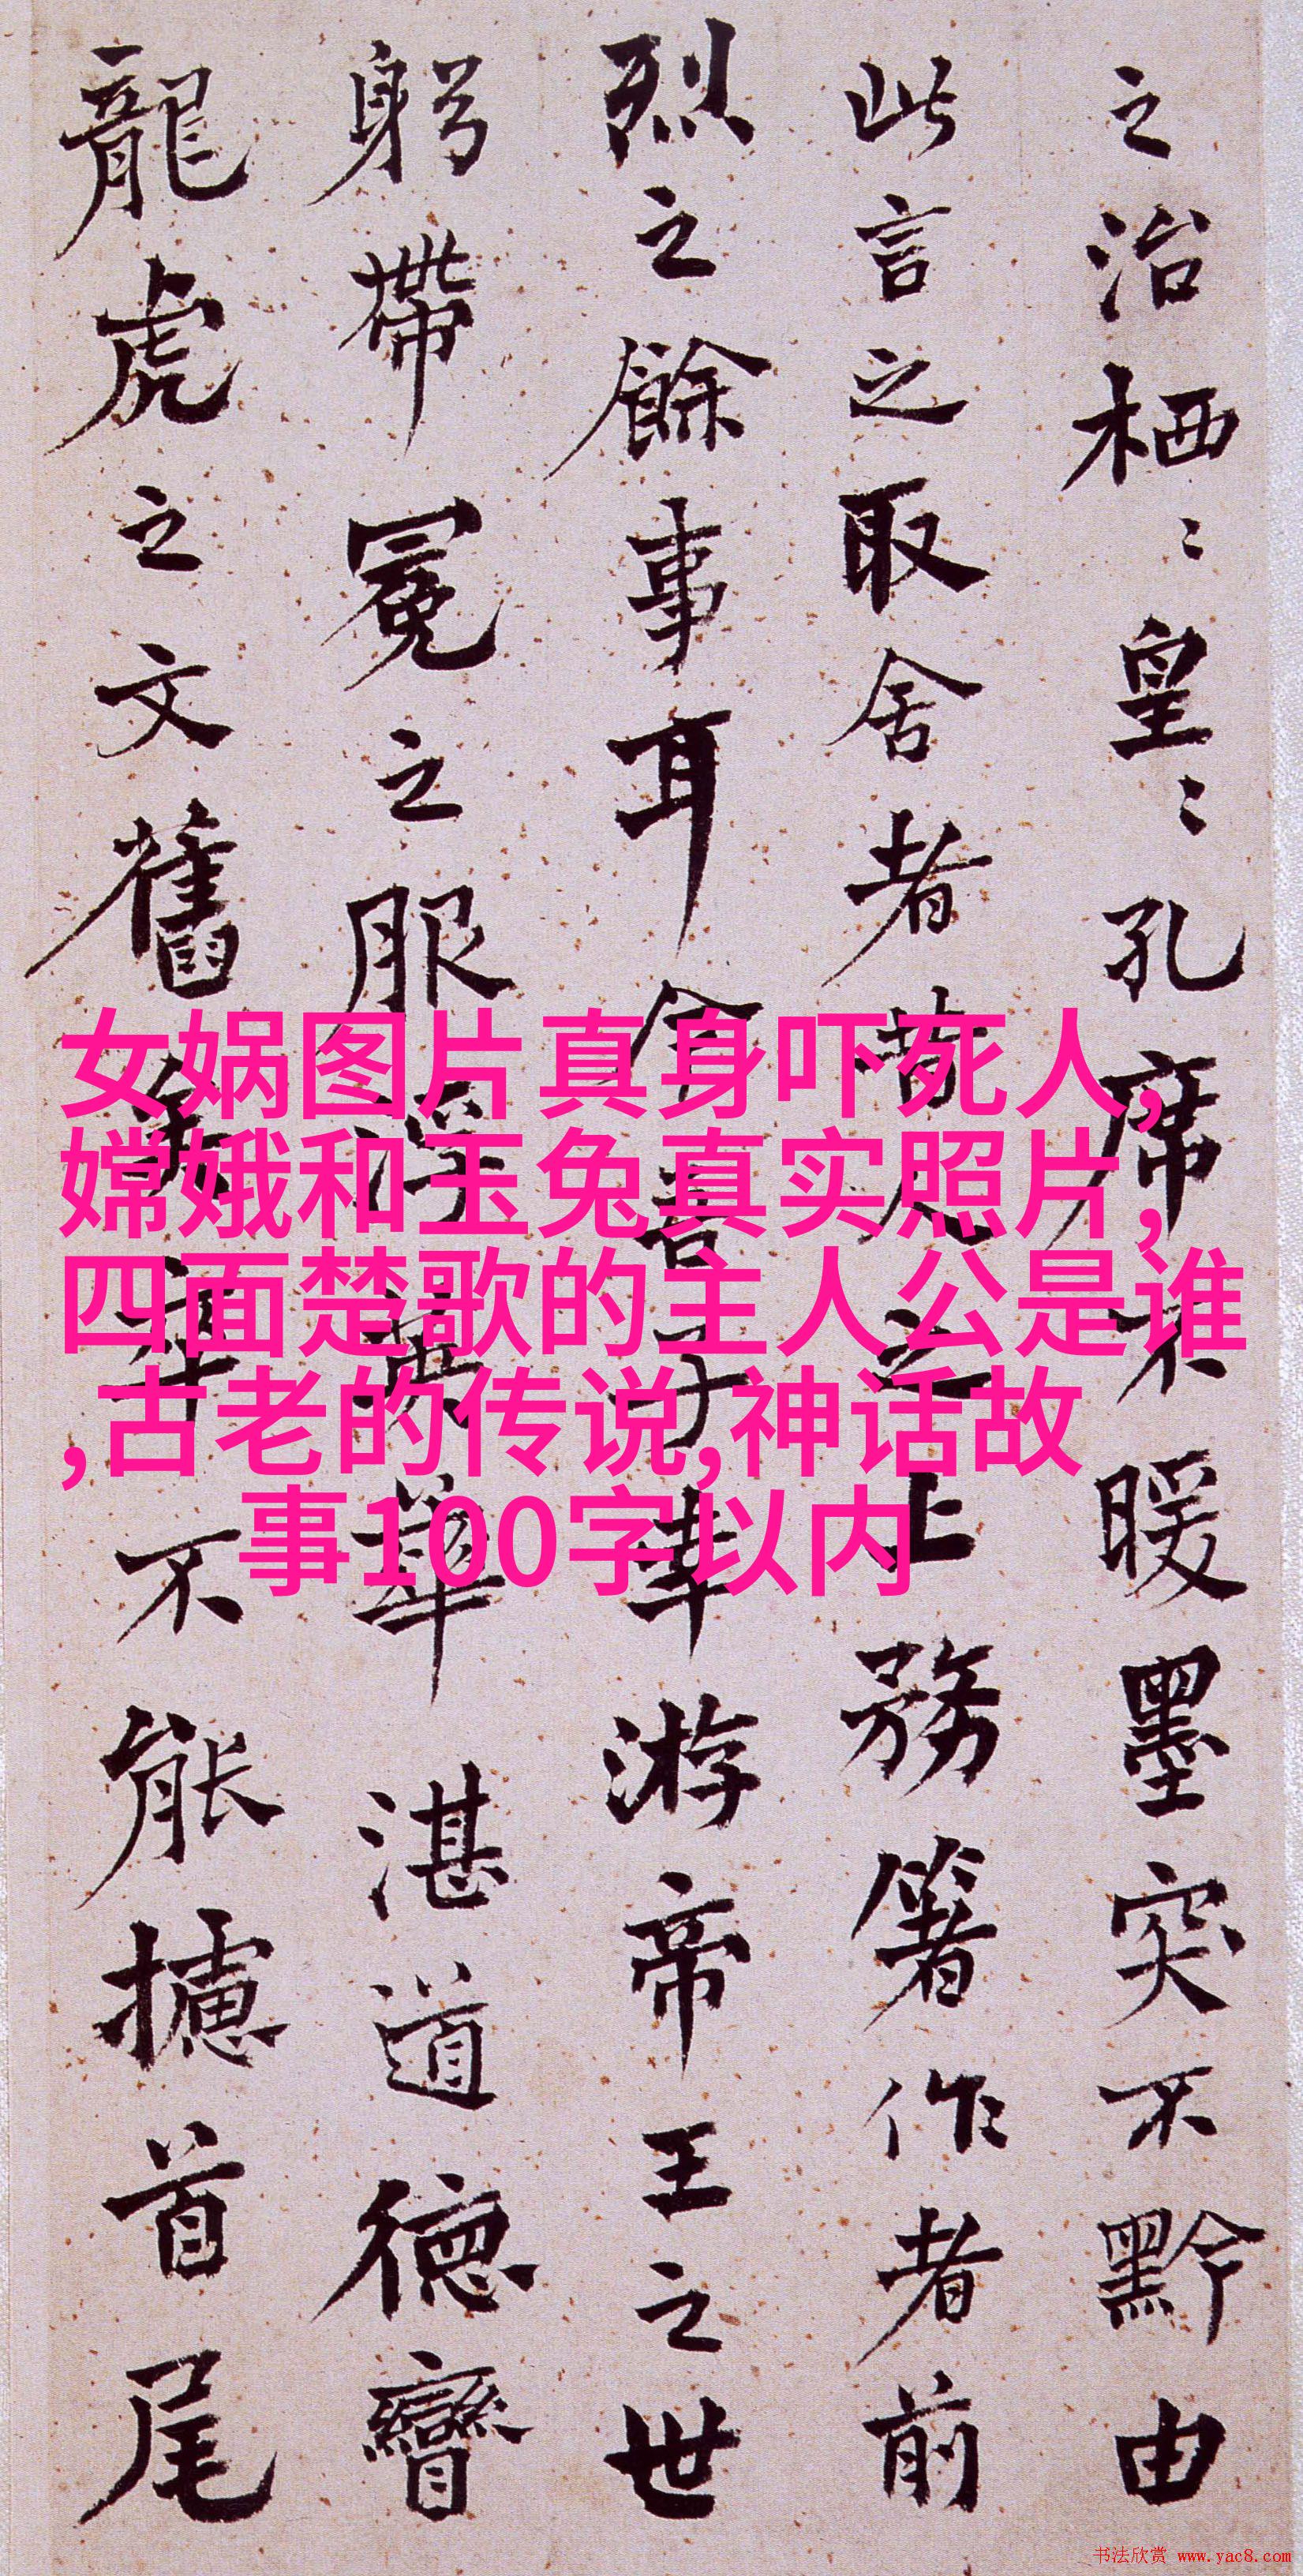 之治栖〻皇〻孔席不暖墨突不黔由
此言之取舍者昔人之上務箸作者前
烈之餘事耳今吾子幸游帝王之世
躬帶冕之服浮英華湛道德矕
龍虎之文舊矣卒不能攄首尾
女娲图片真身吓死人,
嫦娥和玉兔真实照片,
四面楚歌的主人公是谁
,古老的传说,神话故
事100字以内
书法欣赏 www.yac8.com